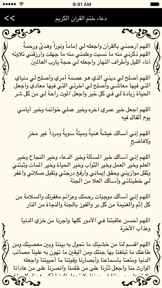 9:41 AM
دعاء ختم القرآن الكريم
اللهم ارحمني بالقرآن واجعله لي إماماً ونوراً وهدى ورحمة
اللهم ذكرني منه ما نسيت وعلمني منه ما جهلت وارزقني تلاوته
آناء الليل وأطراف النهار واجعله لي حجة يارب العالمين
اللهم أصلح لي ديني الذي هو عصمة أمري وأصلح لي دنياي
التي فيها معاشي وأصلح لي آخرتي التي فيها معادي واجعل
الحياة زيادة لي في كل خير واجعل الموت راحة لي من كل شر
اللهم اجعل خير عمري آخره وخير عملي خواتمه وخير أيامي
يوم ألقاك فيه
اللهم إني أسألك عيشة هنية وميتة سوية ومرداً غير مخزٍ
ولا فاضح
اللهم إني أسألك خير المسألة وخير الدعاء وخير النجاح وخير
العلم وخير العمل وخير الثواب وخير الحياة وخير الممات وثبتني
وثقل موازيني وحقق إيماني وارفع درجتي وتقبل صلاتي واغفر
لي خطيئاتي وأسألك العلا من الجنة
اللهم إني أسألك موجبات رحمتك وعزائم مغفرتك والسلامة من
كل إثم والغنيمة من كل بر والفوز بالجنة والنجاة من النار
اللهم أحسن عاقبتنا في الأمور كلها وأجرنا من خزي الدنيا
وعذاب الآخرة
اللهم اقسم لنا من خشيتك ما تحول به بيننا وبين معصيتك ومن
طاعتك ما تبلغنا بها جنتك ومن اليقين ما تهون به علينا مصائب
الدنيا ومتعنا بأسماعنا وأبصارنا وقوتنا ما أحييتنا واجعله
الوارث منا واجعل ثأرنا على من ظلمنا وانصرنا على من عادانا